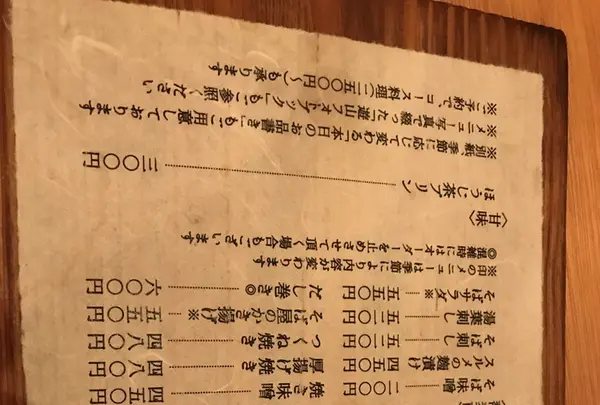 そば味噌 二〇〇円 焼き味噌 四五〇円
スルメの麹漬け 四五〇円 厚揚げ焼き 四八〇円
そば刺し 五二〇円 つくね焼き 四八〇円
湯葉刺し 五二〇円 そば屋のかき揚げ※ 五五〇円
そばサラダ※ 五五〇円 だし巻き◎ 六〇〇円
※印のメニューは季節により内容が変わります
◎混雑時にはオーダーを止めさせて頂く場合もございます
〈甘味〉
ほうじ茶プリン 三〇〇円
※別紙、季節に応じて変わる「本日のお品書き」もご用意しております
※メニュー写真で綴った「遊山フォトブック」もご参照ください
※ご予約で、コース料理(二五〇〇円〜)も承ります